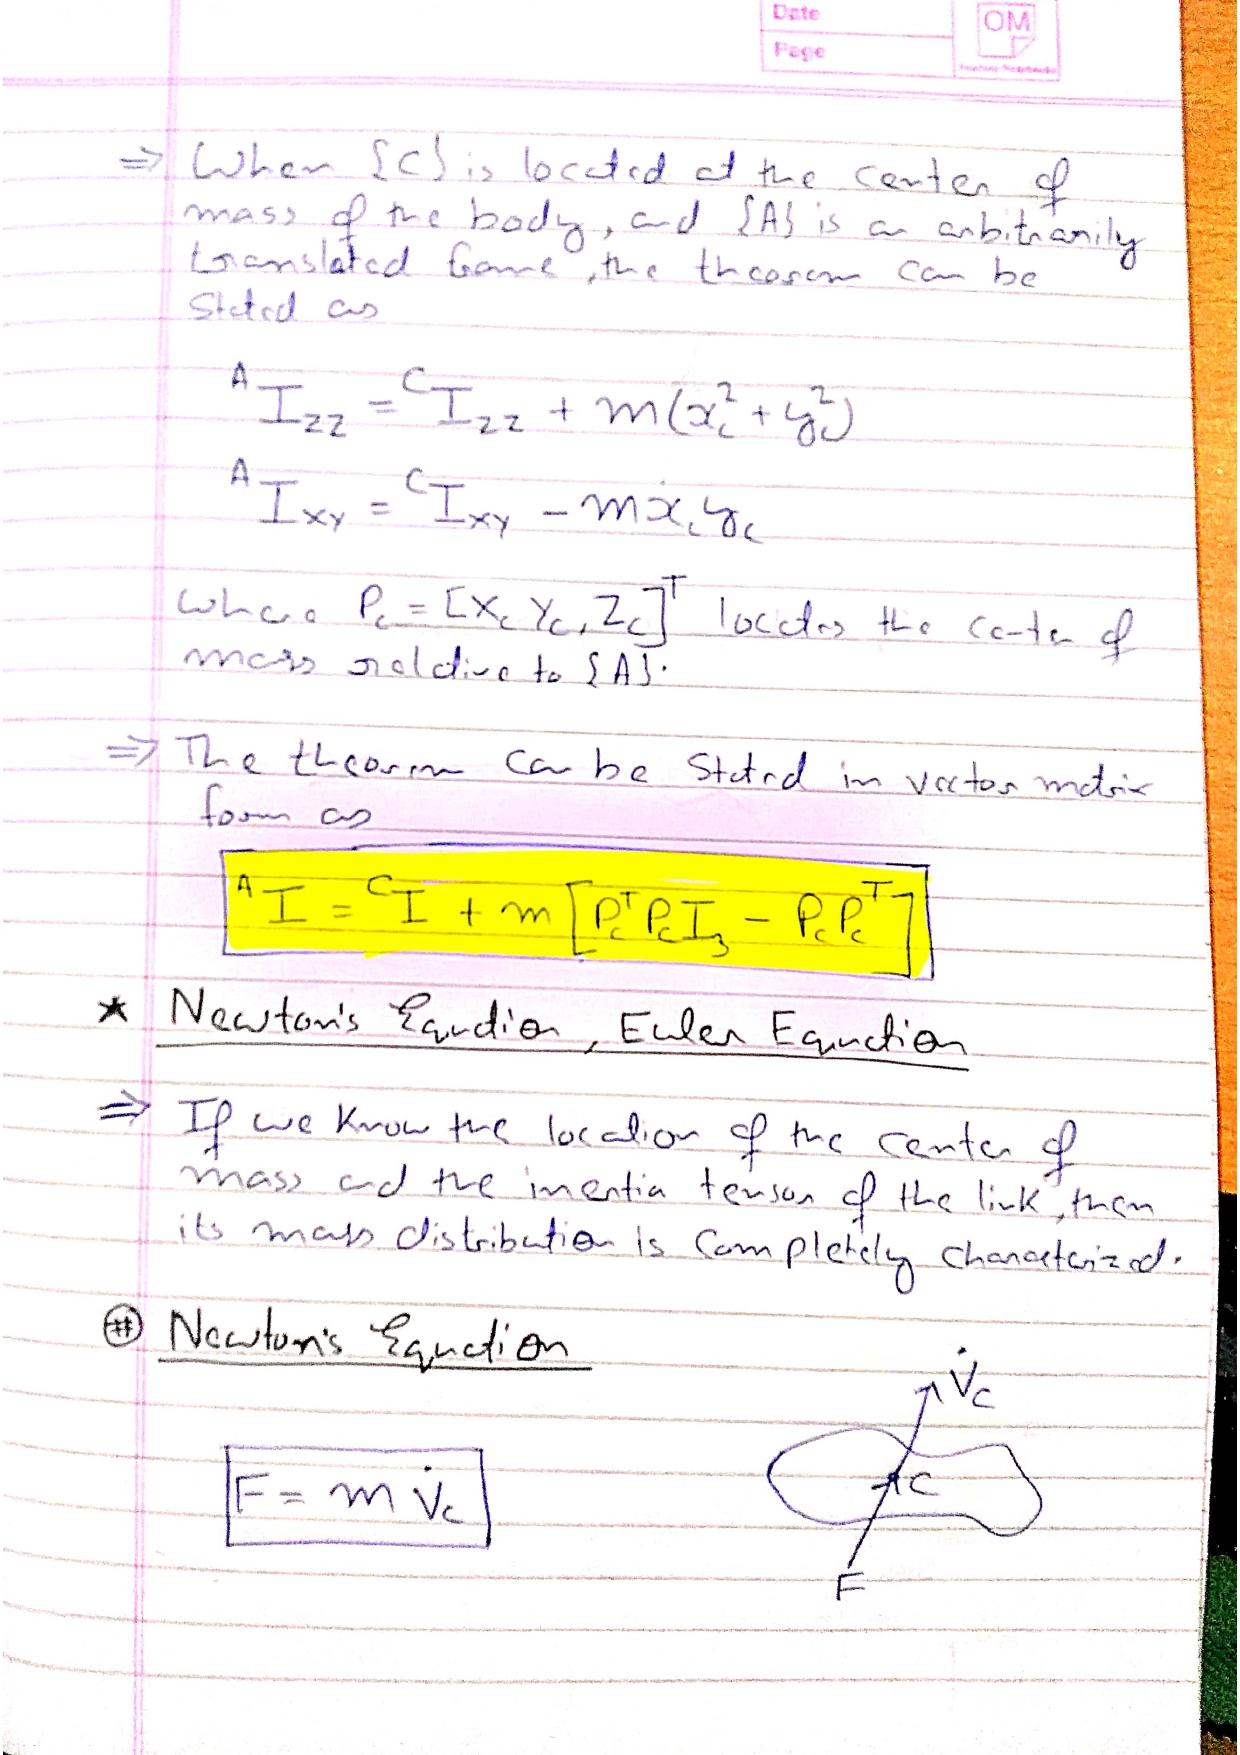 Date
OM
Page
⇒ When {C} is located at the center of
mass of the body, and {A} is an arbitrarily
translated frame, the theorem can be
stated as
ᴬI_zz = ᶜI_zz + m(x_c² + y_c²)
ᴬI_xy = ᶜI_xy - m x_c y_c
where P_c = [X_c Y_c, Z_c]ᵀ locates the center of
mass relative to {A}.
⇒ The theorem can be stated in vector matrix
form as
ᴬI = ᶜI + m [P_cᵀ P_c I_3 - P_c P_cᵀ]
* Newton's Equation, Euler Equation
⇒ If we know the location of the center of
mass and the inertia tensor of the link, then
its mass distribution is completely characterized.
# Newton's Equation
V̇_c
F = m V̇_c
C
F